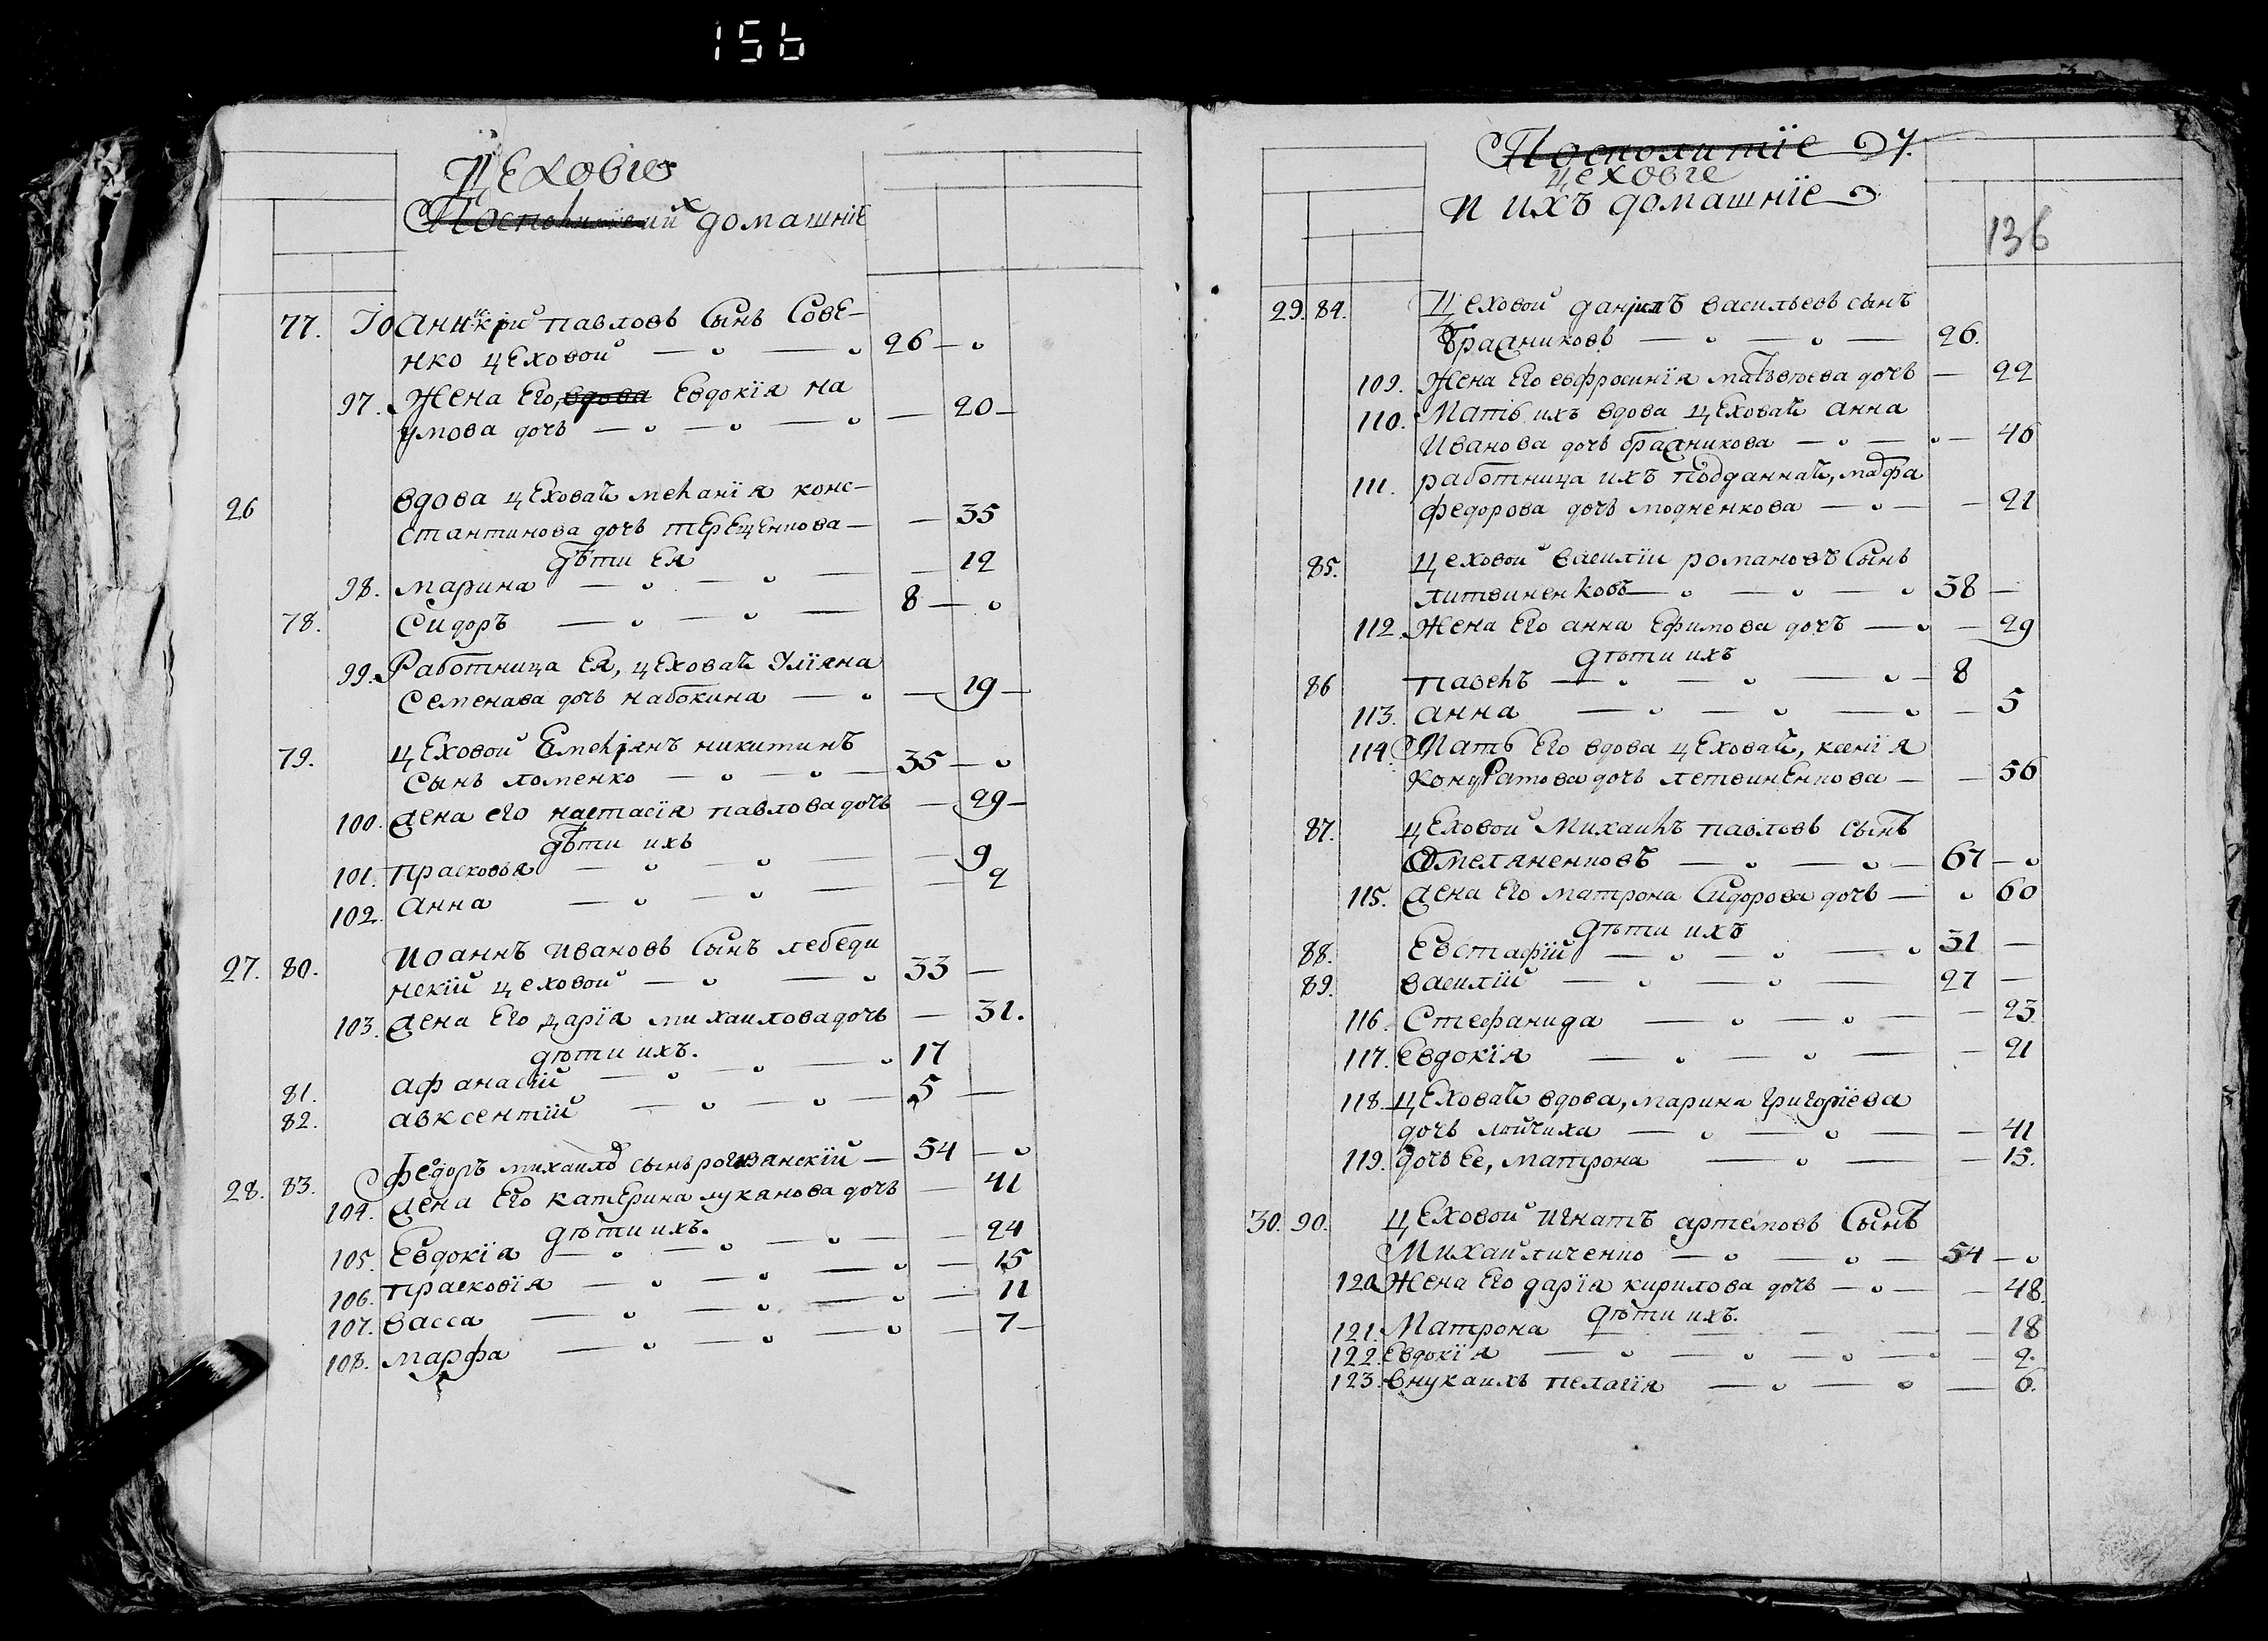 156
Цеховіе
Посполитіе ихъ домашніе
77. Іоанникій павловъ Сынъ Сове-
нко цеховой 26
97. Жена Его, вдова Евдокія на
умова дочь 20
26 вдова цеховая меланія конс-
стантинова дочь терещенкова 35
дѣти Ея
98. марина 12
78. Сидоръ 8
99. Работница Ея, цеховая Уліяна
Семенава дочь набокина 19
79. цеховой Емеліянъ никитинъ
Сынъ ломенко 35
100. Жена его настасія павлова дочь 29
дѣти ихъ
101. Прасковья 9
102. Анна 2
27. 80. Иоаннъ Ивановъ Сынъ лебеди
нскій цеховой 33
103. Жена Его дарія михаилова дочь 31.
дѣти ихъ.
81. афанасій 17
82. авксентій 5
28. 83. Федоръ михаилов сынъ рогизанскій 54
104. Жена Его катерина луканова дочь 41
дѣти ихъ.
105. Евдокія 24
106. Прасковія 15
107. Васса 11
108. Марфа 7
Посполитіе 7.
цеховіе
и ихъ домашніе
136
29. 84. Цеховой данилъ васильевъ сынъ
Браdниковъ 26.
109. Жена Его евфросинія матвѣева дочь 22
110. Мать ихъ вдова цеховая анна
Иванова дочь браdникова 46
111. работница ихъ подданная, мафа
федорова дочь модненкова 21
85. цеховой василій романовъ Сынъ
литвиненковъ 38
112. Жена Его анна Ефимова дочъ 29
дѣти ихъ
86 павелъ 8
113. анна 5
114. Мать Его вдова цеховая, ксенія
кондратова дочь летвиненкова 56
87. цеховой Михаилъ павловъ сынъ
Омеляненковъ 67
115. Жена Его матрона Сидорова дочь 60
дѣти ихъ
88. Евстафій 31
89. василій 27
116. Стефанида 23
117. Евдокія 21
118. цеховая вдова, марина григоріева
дочь лойчиха 41
119. дочь Ее, матрона 15.
30. 90. цеховой игнатъ артемовъ Сынъ
Михайличенко 54
120. Жена Его дарія кирилова дочь 48.
дѣти ихъ.
121. Матрона 18
122. Евдокія 9.
123. внука ихъ пелагія 6.